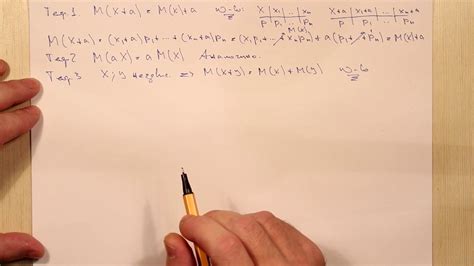 Теор.1 M(X+a) = M(X)+a X x₁ … xₙ X+a x₁+a … xₙ+a
P p₁ … pₙ P p₁ … pₙ
M(X+a) = (x₁+a)p₁ + … + (xₙ+a)pₙ = (x₁p₁ + … + xₙpₙ) + a(p₁ + … + pₙ) = M(X)+a
Теор2 M(aX) = aM(X) Аналогично.
Теор.3 X, Y ⇒ M(X+Y) = M(X)+M(Y)